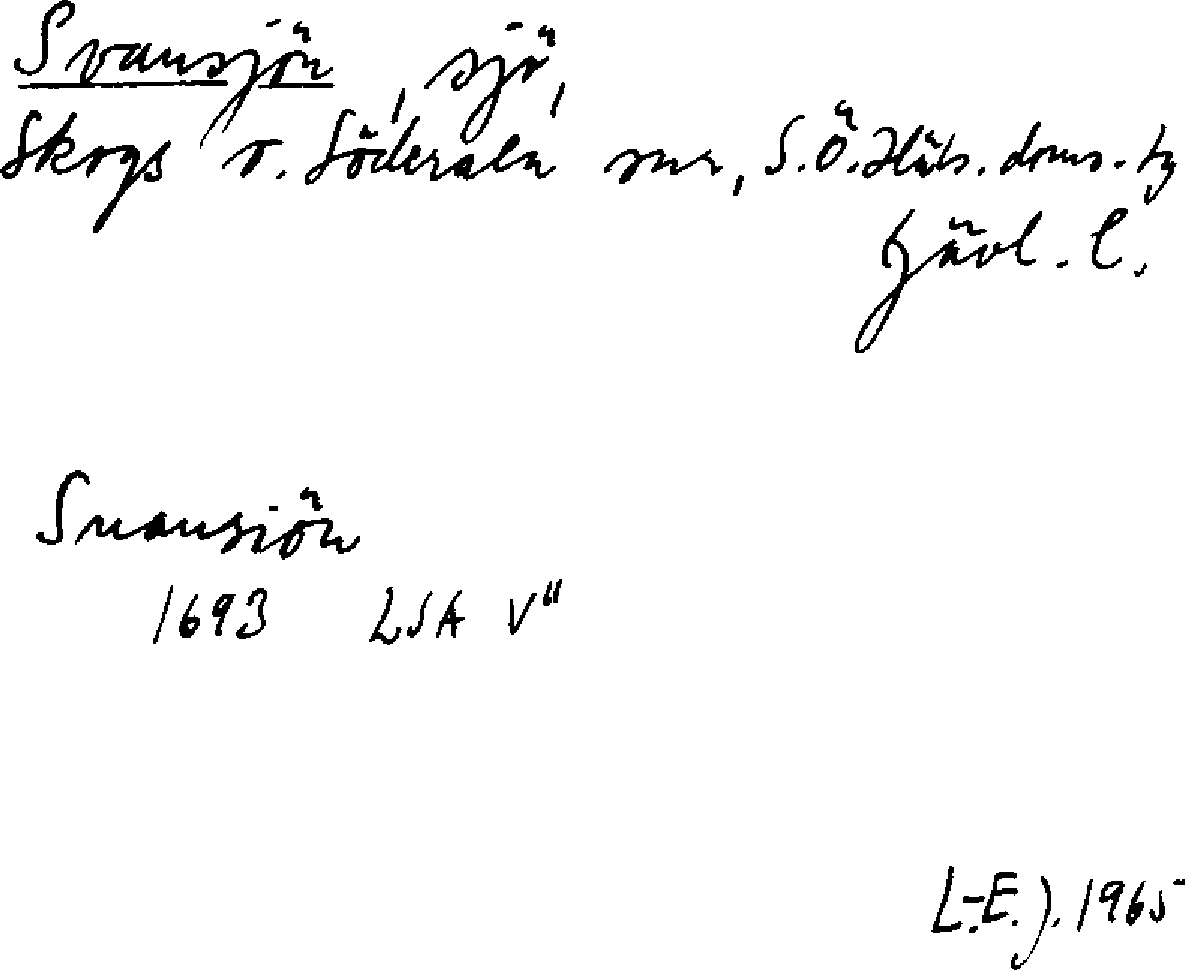 Svansjön, sjö,
Skogs o. Söderala snr, S.Ö. Häls. doms. hg
Gävl. l.
Suansiön
1693 LSA V"
L.-E. J. 1965